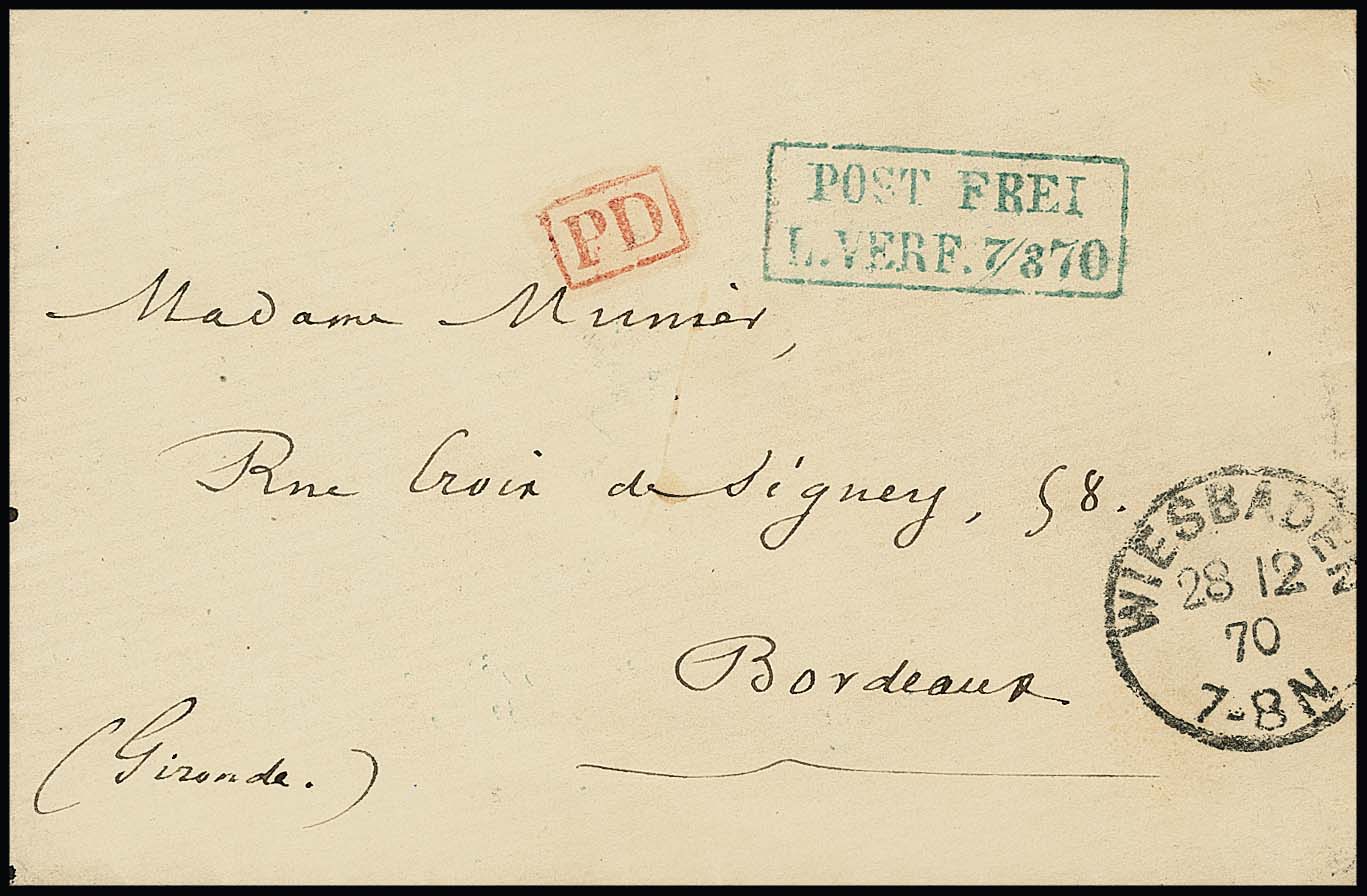 POST FREI
L.VERF. 7/870
PD
Madame Munier,
Rue Croix de Séguey, 58.
Bordeaux
(Gironde.)
WIESBADEN
28 12
70
7-8 N